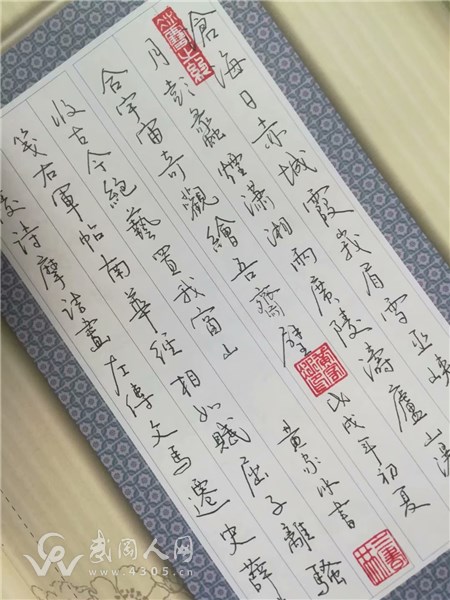 滄海日赤城霞峨眉雪巫峽
月彭蠡煙瀟湘雨廣陵濤廬山
合宇宙奇觀繪吾齋壁
戊戌年初夏
黄家冰書
收古今絕藝置我窗山
箋右軍帖南華經相如賦屈子離騷
詩摩詰畫左傳文馬遷史薛
武冈人网
www.4305.cn